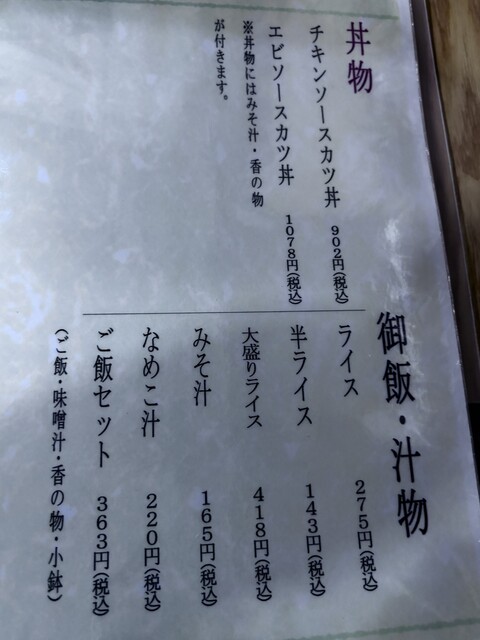 丼物
チキンソースカツ丼 902円(税込)
エビソースカツ丼 1078円(税込)
※丼物にはみそ汁・香の物
が付きます。
御飯・汁物
ライス 275円(税込)
半ライス 143円(税込)
大盛りライス 418円(税込)
みそ汁 165円(税込)
なめこ汁 220円(税込)
ご飯セット 363円(税込)
(ご飯・味噌汁・香の物・小鉢)